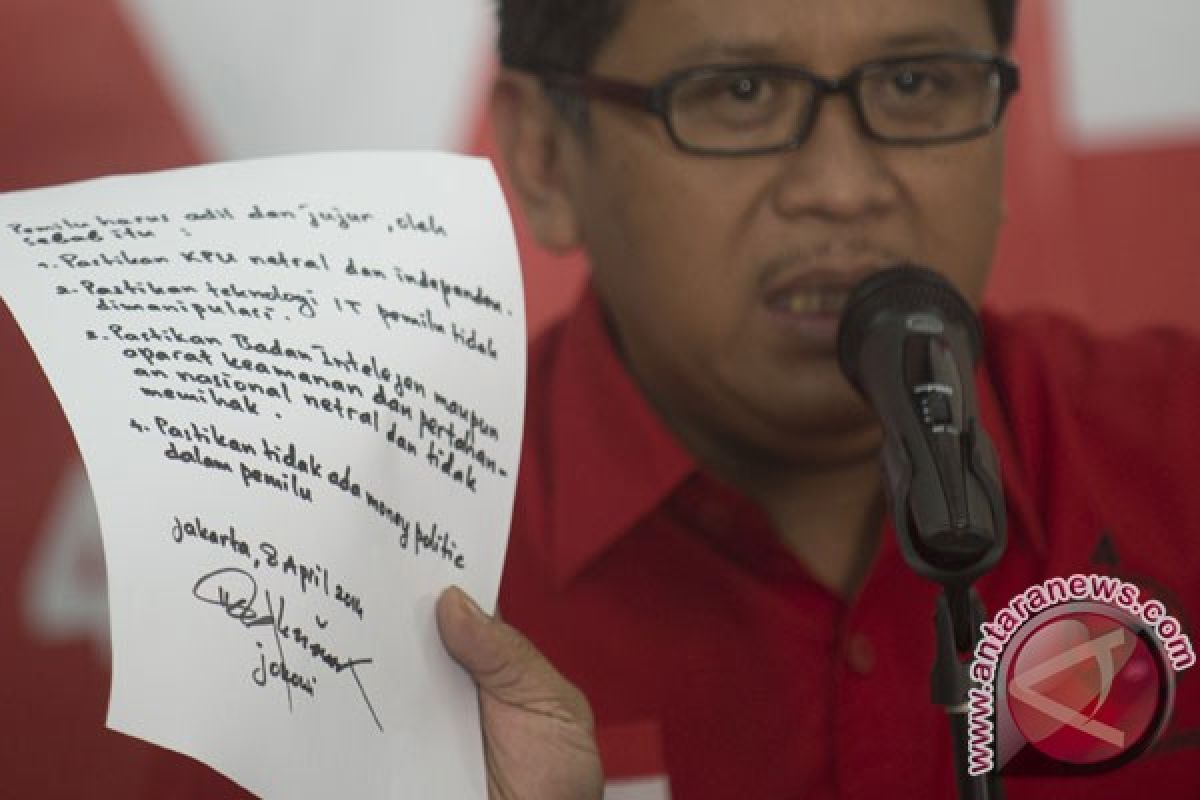 Pemilu harus adil dan jujur, oleh
sebab itu :
1. Pastikan KPU netral dan independen.
2. Pastikan teknologi IT pemilu tidak
dimanipulasi.
3. Pastikan Badan Intelejen maupun
aparat keamanan dan pertahan-
an nasional netral dan tidak
memihak.
4. Pastikan tidak ada money politic
dalam pemilu
Jakarta, 8 April 2014
jokowi
www.antaranews.com